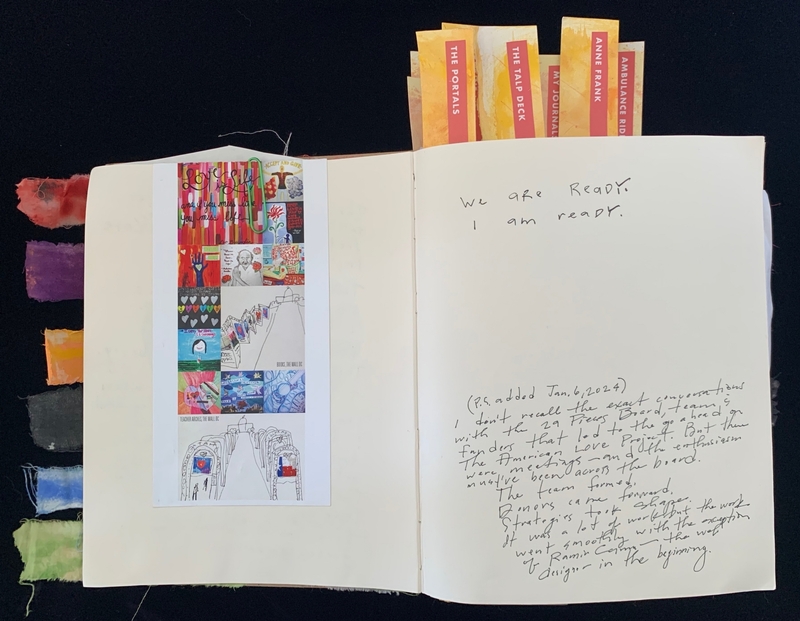 THE PORTALS
THE TALP DECK
MY JOURNAL
ANNE FRANK
AMBULANCE RID
Love is Life
and if you miss love
you miss life
BOOKS, THE MALL DC
TEACHER MODELS, THE MALL DC
We are Ready.
I am ready.
(P.S. added Jan, 6, 2024)
I don't recall the exact conversations
with the 29 Pieces Board, team &
funders that led to the go ahead on
The American Love Project. But there
were meetings - and the enthusiasm
must've been across the board.
The team formed.
Donors came forward.
Strategies took shape.
It was a lot of work but the work
went smoothly with the exception
of Ramir — the web
designer in the beginning.